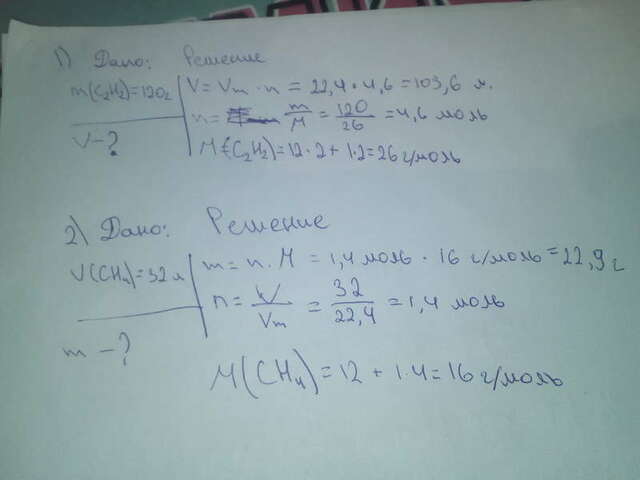 1) Дано: Решение
m(C₂H₂)=120г V=Vm·n=22,4·4,6=103,6 л.
n= m/M = 120/26 =4,6 моль
V-?
M(C₂H₂)=12·2+1·2=26г/моль
2) Дано: Решение
V(CH₄)=32л m=n·M=1,4моль·16г/моль=22,9г
n= V/Vm = 32/22,4 =1,4 моль
m-?
M(CH₄)=12+1·4=16г/моль